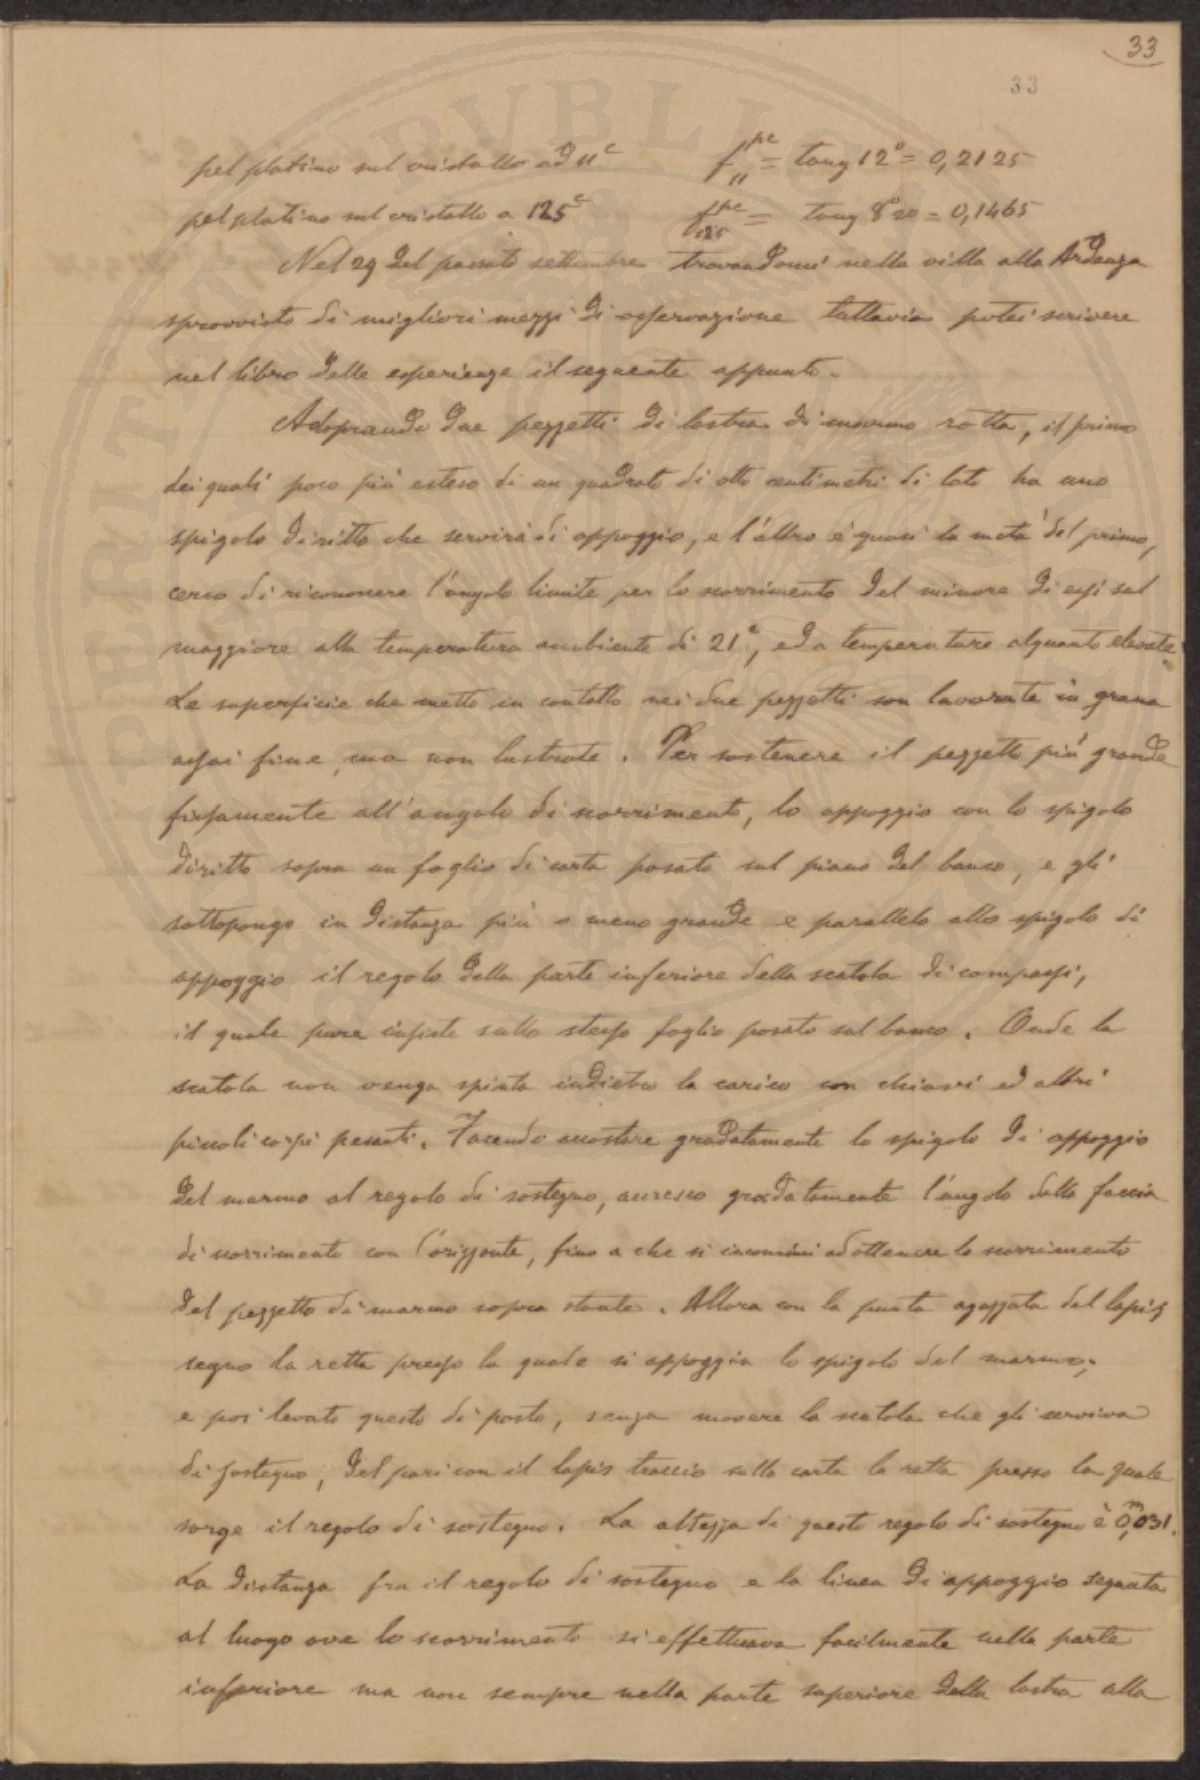 33
33
pel platino sul cristallo ad 11c f pc 11 = tang 12° = 0,2125
pel platino sul cristallo a 125c f pc 125 = tang 8° 20 = 0,1465
Nel 29 del passato settembre trovandomi nella villa alla Ardenza
sprovvisto di migliori mezzi di osservazione tuttavia potei scrivere
nel libro delle esperienze il seguente appunto.
Adoprando due pezzetti di lastra di marmo rotta, il primo
dei quali poco più esteso di un quadrato di otto centimetri di lato ha uno
spigolo diritto che servirà di appoggio, e l'altro è quasi la metà del primo,
cerco di riconoscere l'angolo limite per lo scorrimento del minore di essi sul
maggiore alla temperatura ambiente di 21c, ed a temperature alquanto elevate.
Le superficie che metto in contatto nei due pezzetti son lavorate in grana
assai fine, ma non lustrate. Per sostenere il pezzetto più grande
fissamente all'angolo di scorrimento, lo appoggio con lo spigolo
diritto sopra un foglio di carta posato sul piano del banco, e gli
sottopongo in distanza più o meno grande e parallelo allo spigolo di
appoggio il regolo della parte inferiore della scatola di compassi,
il quale pure insiste sullo stesso foglio posato sul banco. Onde la
scatola non venga spinta indietro la carico con chiavi ed altri
piccoli corpi pesanti. Facendo accostare gradatamente lo spigolo di appoggio
del marmo al regolo di sostegno, accresco gradatamente l'angolo della faccia
di scorrimento con l'orizzonte, fino a che si incominci ad ottenere lo scorrimento
del pezzetto di marmo sopra stante. Allora con la punta aguzzata del lapis
segno la retta presso la quale si appoggia lo spigolo del marmo;
e poi levato questo di posto, senza movere la scatola che gli serviva
di sostegno, del pari con il lapis traccio sulla carta la retta presso la quale
sorge il regolo di sostegno. La altezza di questo regolo di sostegno è 0,m031.
La distanza fra il regolo di sostegno e la linea di appoggio segnata
al luogo ove lo scorrimento si effettuava facilmente nella parte
inferiore ma non sempre nella parte superiore della lastra alla